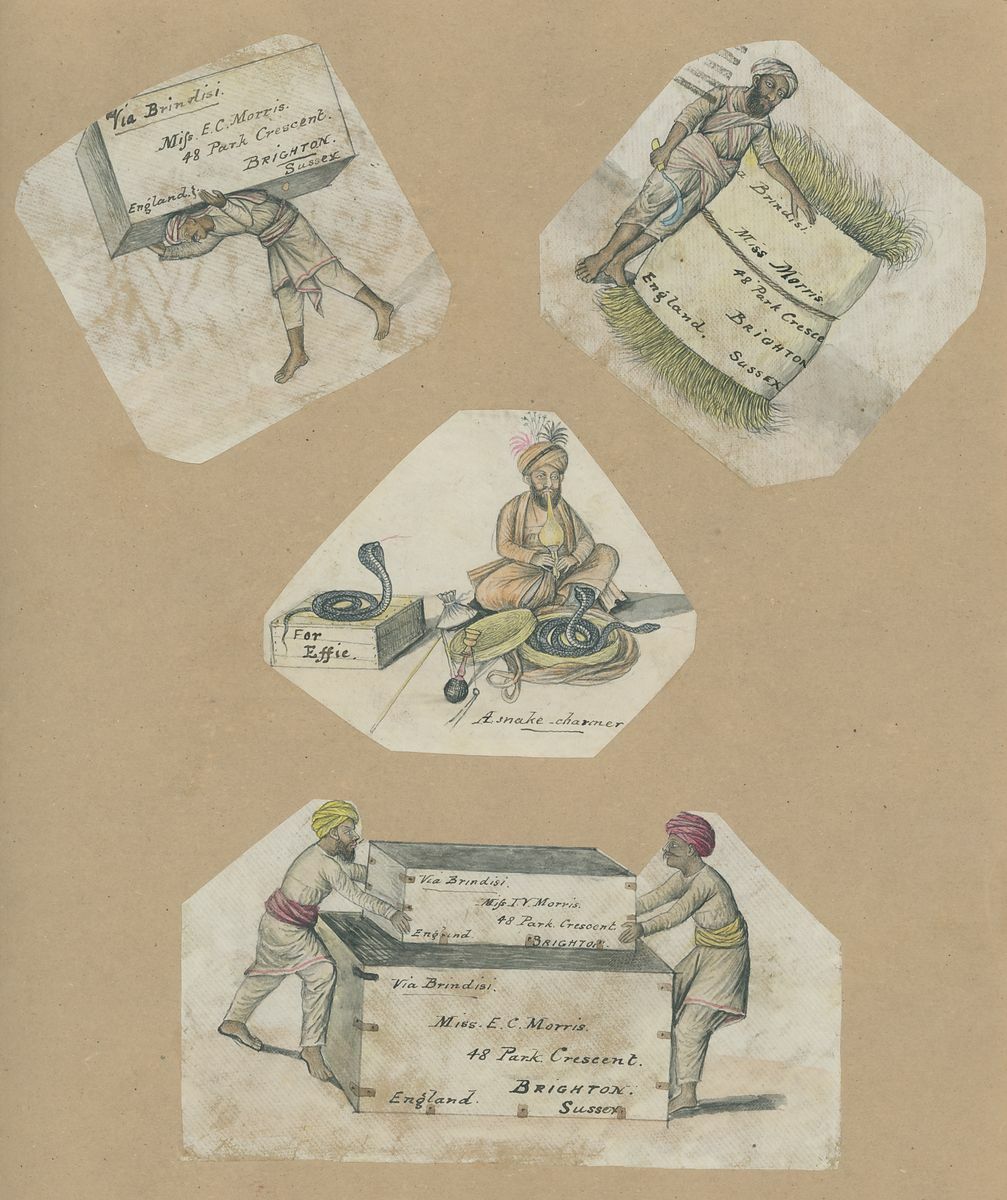 Via Brindisi.
Miſs E.C. Morris.
48 Park Crescent.
BRIGHTON.
Sussex
England.
a Brindisi.
Miss Morris.
48 Park Cresce
BRIGHTON
SUSSEX
England.
For
Effie.
A snake-charmer
Via Brindisi.
Miſs I.V. Morris.
48 Park Crescent.
England
BRIGHTON.
Via Brindisi.
Miss. E. C. Morris.
48 Park Crescent.
BRIGHTON.
England.
Sussex.